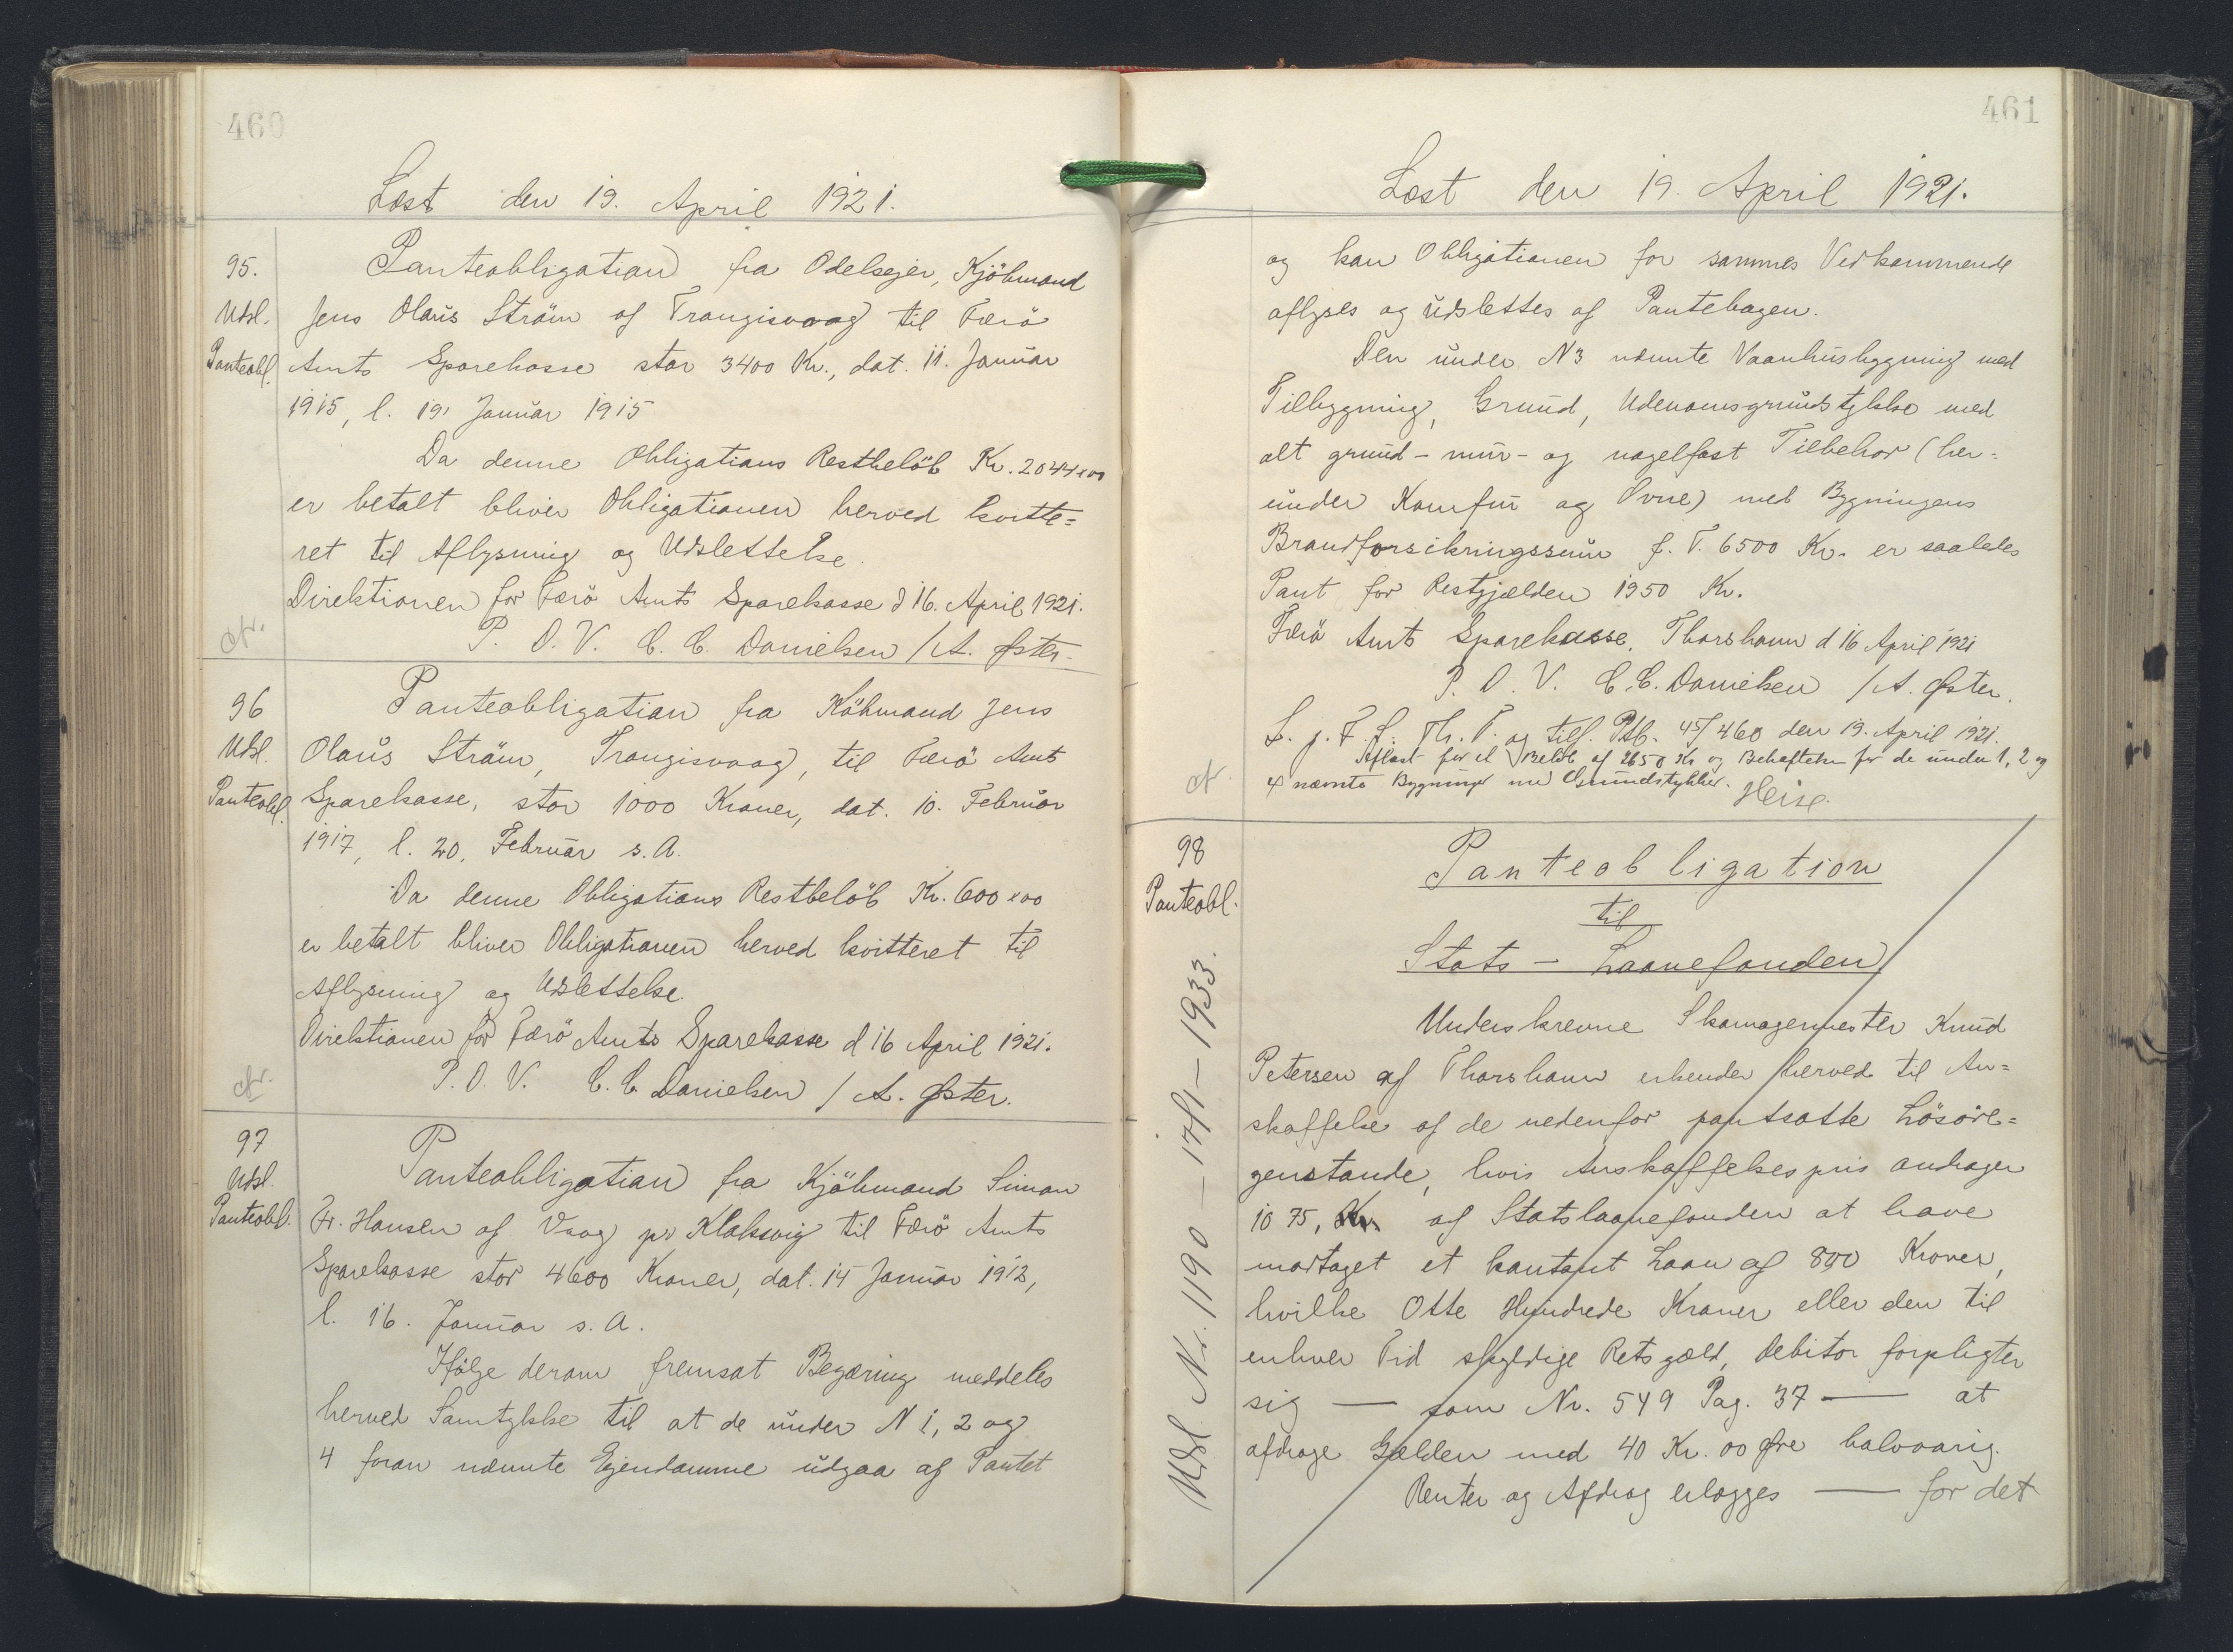 460
Læst den 19. April 1921.
95.
Udsl.
Panteobl.
Panteobligation fra Odelsejer, Kjöbmand
Jens Olaus Ström af Trangisvaag til Færö
Amts Sparekasse stor 3400 Kr., dat. 11. Januar
1915, l. 19. Januar 1915
Da denne Obligations Restbelöb Kr. 2044 x 00
er betalt bliver Obligationen herved kvitte=
ret til Aflysning og Udslettelse.
Direktionen for Færö Amts Sparekasse d 16. April 1921.
P. D. V. C. C. Danielsen / A. Øster.
cfr.
96
Udsl.
Panteobl.
Panteobligation fra Köbmand Jens
Olaus Ström, Trangisvaag, til Færö Amts
Sparekasse, stor 1000 Kroner, dat. 10. Februar
1917, l. 20. Februar s. A.
Da denne Obligations Restbelöb Kr. 600 x 00
er betalt bliver Obligationen herved kvitteret til
Aflysning og Udslettelse.
Direktionen for Færö Amts Sparekasse d 16 April 1921.
P. D. V. C. C. Danielsen / A. Øster.
cfr.
97
Udsl.
Panteobl.
Panteobligation fra Kjöbmand Simon
Fr. Hansen af Vaag pr Klaksvig til Færö Amts
Sparekasse stor 4600 Kroner, dat. 15 Januar 1912,
l. 16. Januar s. A.
Ifölge derom fremsat Begæring meddeles
herved Samtykke til at de under N 1, 2 og
4 foran nævnte Ejendomme udgaa af Pantet
461
Læst den 19. April 1921.
og kan Obligationen for sammes Vedkommende
aflyses og udslettes af Pantebogen.
Den under N 3 nævnte Vaanhusbygning med
Tilbygning, Grund, Udenomsgrundstykke med
alt grund- mur- og nagelfast Tilbehør (her=
under Komfur og Ovne) med Bygningens
Brandforsikringssum f. T. 6500 Kr. er saaledes
Pant for Restgjælden 1950 Kr.
Færö Amts Sparekasse, Thorshavn d 16 April 1921
P. D. V. C. C. Danielsen / A. Øster.
L. p. F. S. Th. T. og tilf. Ptb. 45/460 den 19. April 1921.
Aflæst for et Belöb af 2650 Kr og Behæftelsen for de under 1, 2 og
4 nævnte Bygninger med Grundstykker. Heise.
cfr.
98
Panteobl.
Udsl. Nr. 1190 – 17/1 – 1933.
Panteobligation
til
Stats – Laanefonden
Underskrevne Skomagermester Knud
Petersen af Thorshavn erkender herved til An=
skaffelse af de nedenfor pantsatte Lösöre=
genstande, hvis Anskaffelsespris andrager
1075, Kr. af Statslaanefonden at have
modtaget et kontant Laan af 800 Kroner,
hvilke Otte Hundrede Kroner eller den til
enhver Tid skyldige Restgæld, Debitor forpligter
sig — som Nr. 549 Pag. 37 — at
afdrage Gælden med 40 Kr. 00 Øre halvaarig.
Renter og Afdrag erlægges — for det